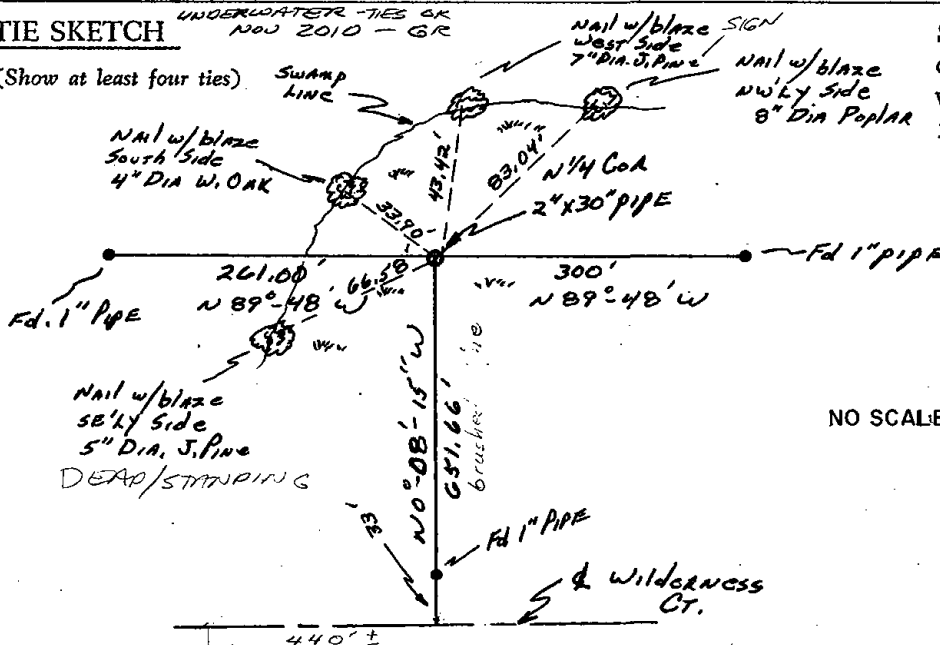 TIE SKETCH
UNDERWATER - TIES OK
NOV 2010 - GR
(Show at least four ties)
SWAMP
LINE
NAIL w/blaze
West Side
7" DIA. J. PINE
SIGN
NAIL w/blaze
NW'LY Side
8" DIA POPLAR
NAIL w/blaze
South Side
4" DIA W. OAK
43.42'
83.04'
33.90'
N 1/4 COR
2" X 30" PIPE
261.00'
N 89°-48' W
66.58'
300'
N 89°-48' W
Fd. 1" PIPE
Fd 1" PIPE
NAIL w/blaze
SE'LY Side
5" DIA. J. PINE
DEAD/STANDING
N 0°-08'-15" W
651.66'
brushed line
NO SCALE
33'
Fd 1" PIPE
℄ WILDERNESS
CT.
440' ±